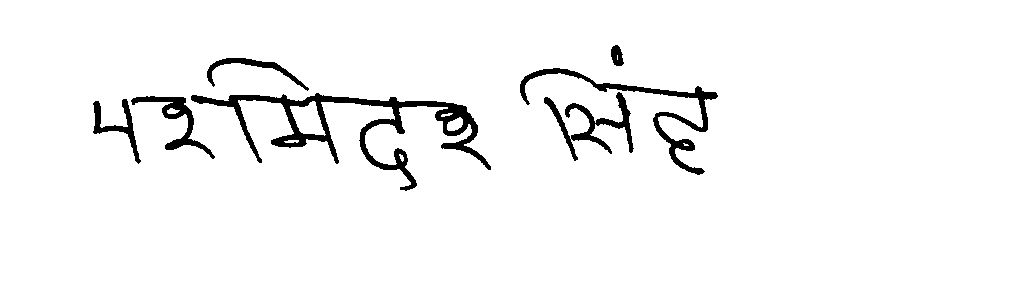 परमिदर सिंह